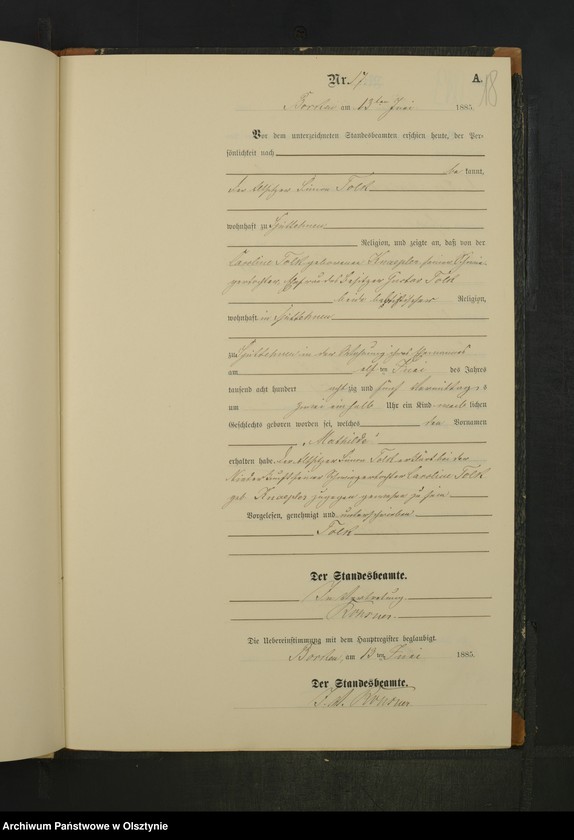 Nr. 17
A.
18
am 13ten Juni 1885.
Vor dem unterzeichneten Standesbeamten erschien heute, der Per-
sönlichkeit nach
be kannt,
der Altsitzer Simon Tolk
wohnhaft zu
Religion, und zeigte an, daß von der
Caroline Tolk geborenen seiner Schwie-
gertochter, Ehefrau des Besitzer Gustav Tolk
beide baptistischer Religion,
wohnhaft in
zu in der Wohnung ihres Ehemannes
am elften Juni des Jahres
tausend acht hundert acht zig und fünf Vormittags
um zwei einhalb Uhr ein Kind weib lichen
Geschlechts geboren worden sei, welches den Vornamen
"Mathilde"
erhalten habe. Der Altsitzer Simon Tolk erklärt bei der
Niederkunft seiner Schwiegertochter Caroline Tolk
geb. zugegen gewesen zu sein
Vorgelesen, genehmigt und unterschrieben
Tolk
Der Standesbeamte.
In Vertretung
Die Uebereinstimmung mit dem Hauptregister beglaubigt.
am 13ten Juni 1885.
Der Standesbeamte.
Archiwum Państwowe w Olsztynie